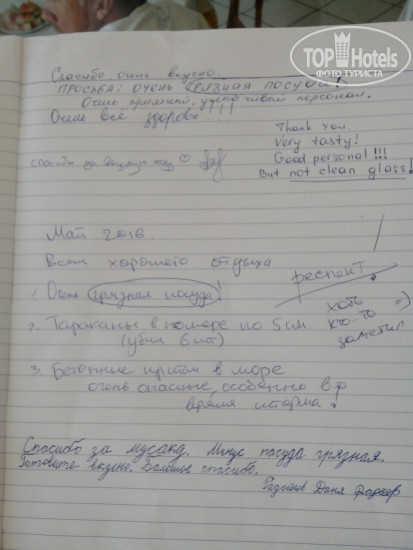 TOP Hotels
ФОТО ТУРИСТА
Спасибо очень вкусно.
ПРОСЬБА: ОЧЕНЬ ГРЯЗНАЯ ПОСУДА!
Очень приятный, учтивый персонал.
Очень всё здорово!!!
Thank you
Very tasty!
Good personal!!!
But not clean glass!
спасибо за вашу
Май 2016.
Всем хорошего отдыха
респект.
1. Очень грязная посуда!
2. Тараканы в номере по 5 см
(убил 6 шт)
хоть =)
кто-то
заметил
3. Бетонные плиты в море
очень опасные, особенно в
время шторма!
Спасибо за мусаку. Минус посуда грязная.
Готовите вкусно. Большое спасибо.
Даня